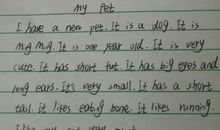 my Pet
I have a new pet. It is a dog. It is
It is one year old. It is very
cute. It has short fut. It has big eyes and
long ears. It's very small. It has a short
tail. it likes eating bone. It likes runing.
I like my